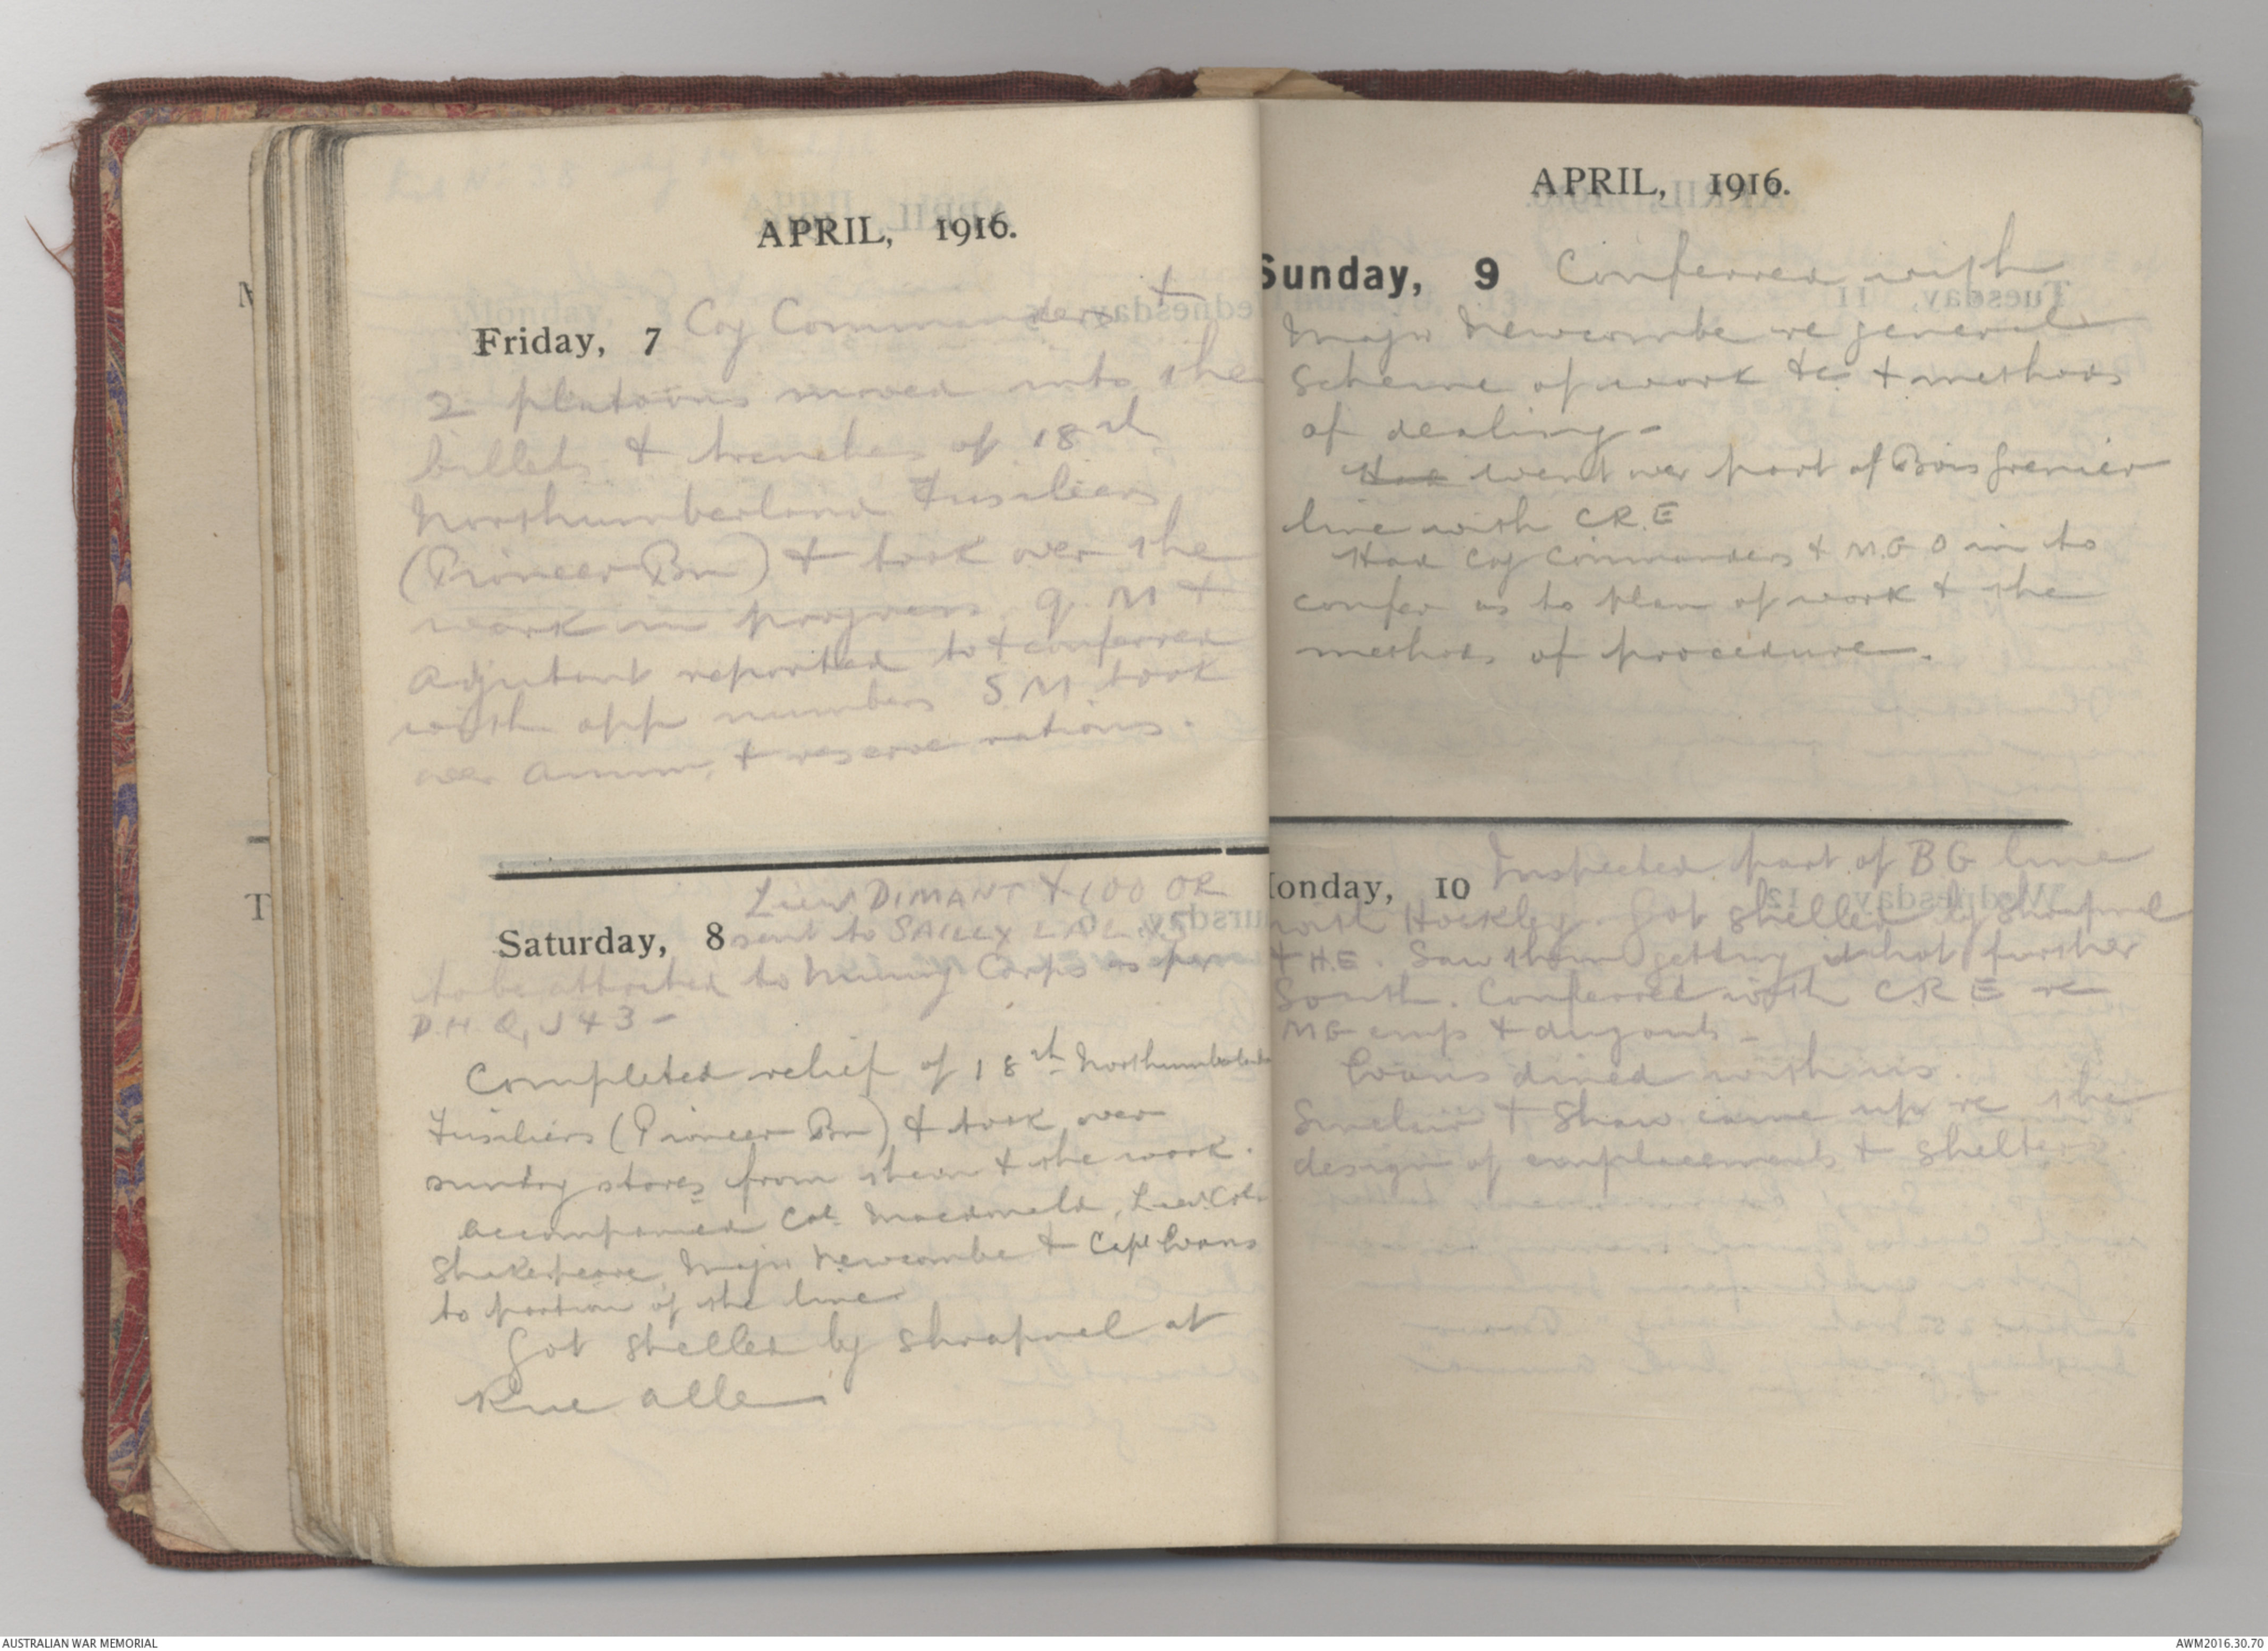 APRIL, 1916.
Friday, 7 Coy Commanders +
2 platoons moved into the
billets & trenches of 18th
Northumberland Fusiliers
(Pioneer Bn) & took over the
work in progress. Q.M &
Adjutant reported to & conferred
with opp numbers S M took
over ammn, & reserve rations.
Lieut DIMANT & 100 OR
Saturday, 8 sent to SAILLY
to be attached to Mining Corps as per
D.H.Q, J43 -
Completed relief of 18th Northumberland
Fusiliers (Pioneer Bn) & took over
sundry stores from them & the work.
Accompanied Col. Macdonald, Lieut. Col.
Shakespeare, Major Newcombe & Capt Evans
to portion of the line
Got shelled by shrapnel at
Rue Alle
APRIL, 1916.
Sunday, 9 Conferred with
Major Newcombe re general
scheme of work &c & methods
of dealing -
Had went over part of Bois Grenier
line with CRE
Had Coy Commanders & M.G O in to
confer as to plan of work & the
methods of procedure.
Inspected part of B G line
Monday, 10
with Hockley. Got shelled by shrapnel
& H.E. Saw them getting it hot further
South. Conferred with C R E re
MG emps & dugouts -
Evans dined with us.
Sinclair & Shaw came up re the
design of emplacements & shelters
AUSTRALIAN WAR MEMORIAL
AWM2016.30.70